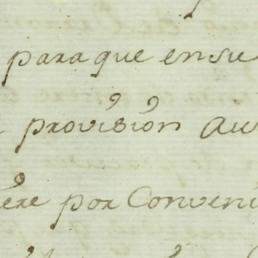 para que en su
provision au
ere por Conveni